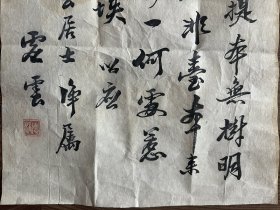 提本無樹明
非臺本来
一何處惹
埃　以應
居士倳属
虛雲